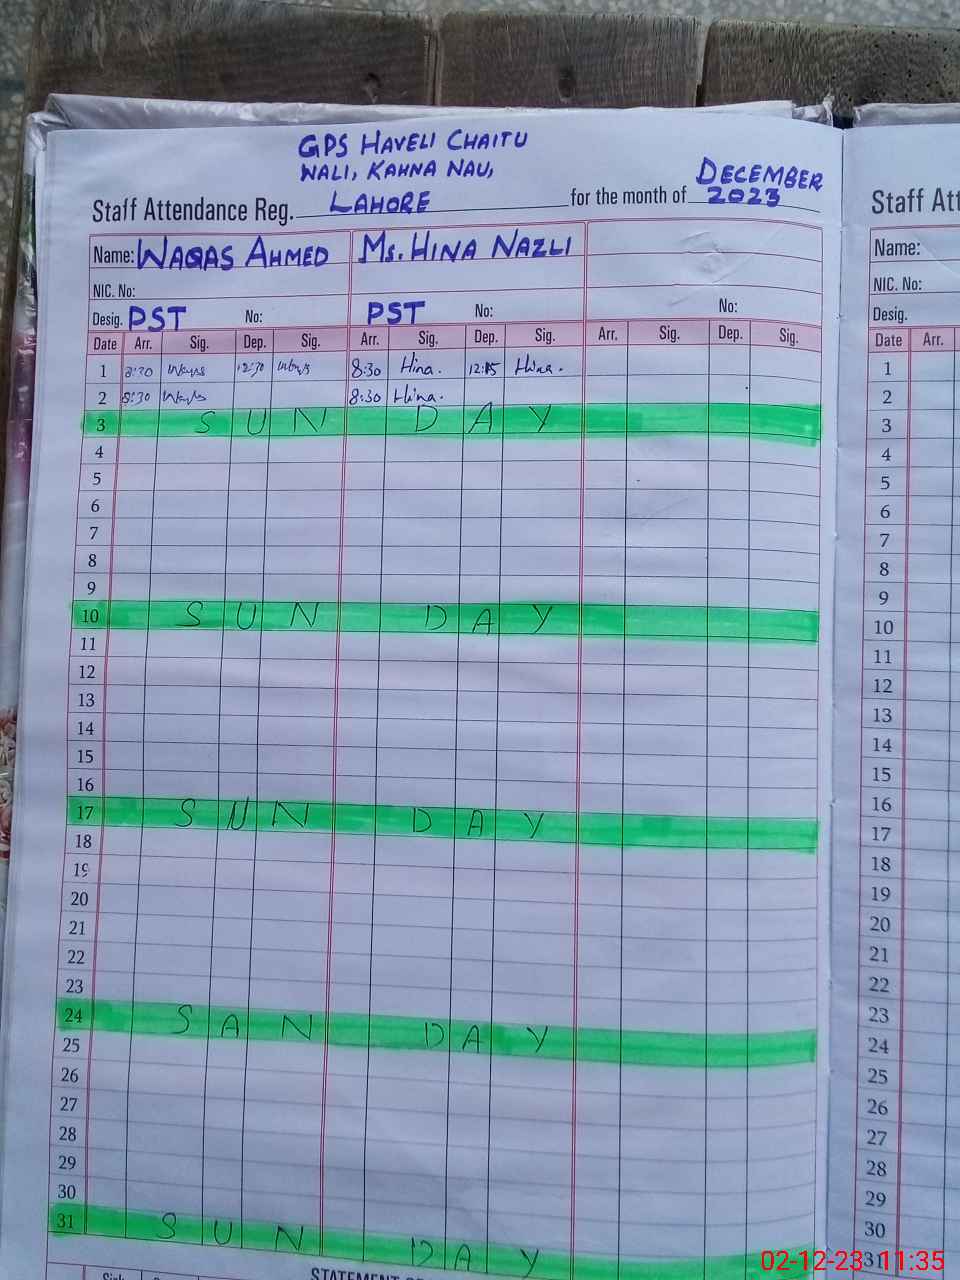 GPS HAVELI CHAITU
WALI, KAHNA NAU,
Staff Attendance Reg. LAHORE for the month of DECEMBER 2023
Name: WAQAS AHMED MS. HINA NAZLI
NIC. No:
Desig. PST No: PST No: No:
Date Arr. Sig. Dep. Sig. Arr. Sig. Dep. Sig. Arr. Sig. Dep. Sig.
1 8:30 12:30 8:30 Hina. 12:15 Hina.
2 8:30 8:30 Hina.
3 S U N D A Y
4
5
6
7
8
9
10 S U N D A Y
11
12
13
14
15
16
17 S U N D A Y
18
19
20
21
22
23
24 S A N D A Y
25
26
27
28
29
30
31 S U N D A Y
STATEMENT
Staff Att
Name:
NIC. No:
Desig.
Date Arr.
1
2
3
4
5
6
7
8
9
10
11
12
13
14
15
16
17
18
19
20
21
22
23
24
25
26
27
28
29
30
31
02-12-23 11:35